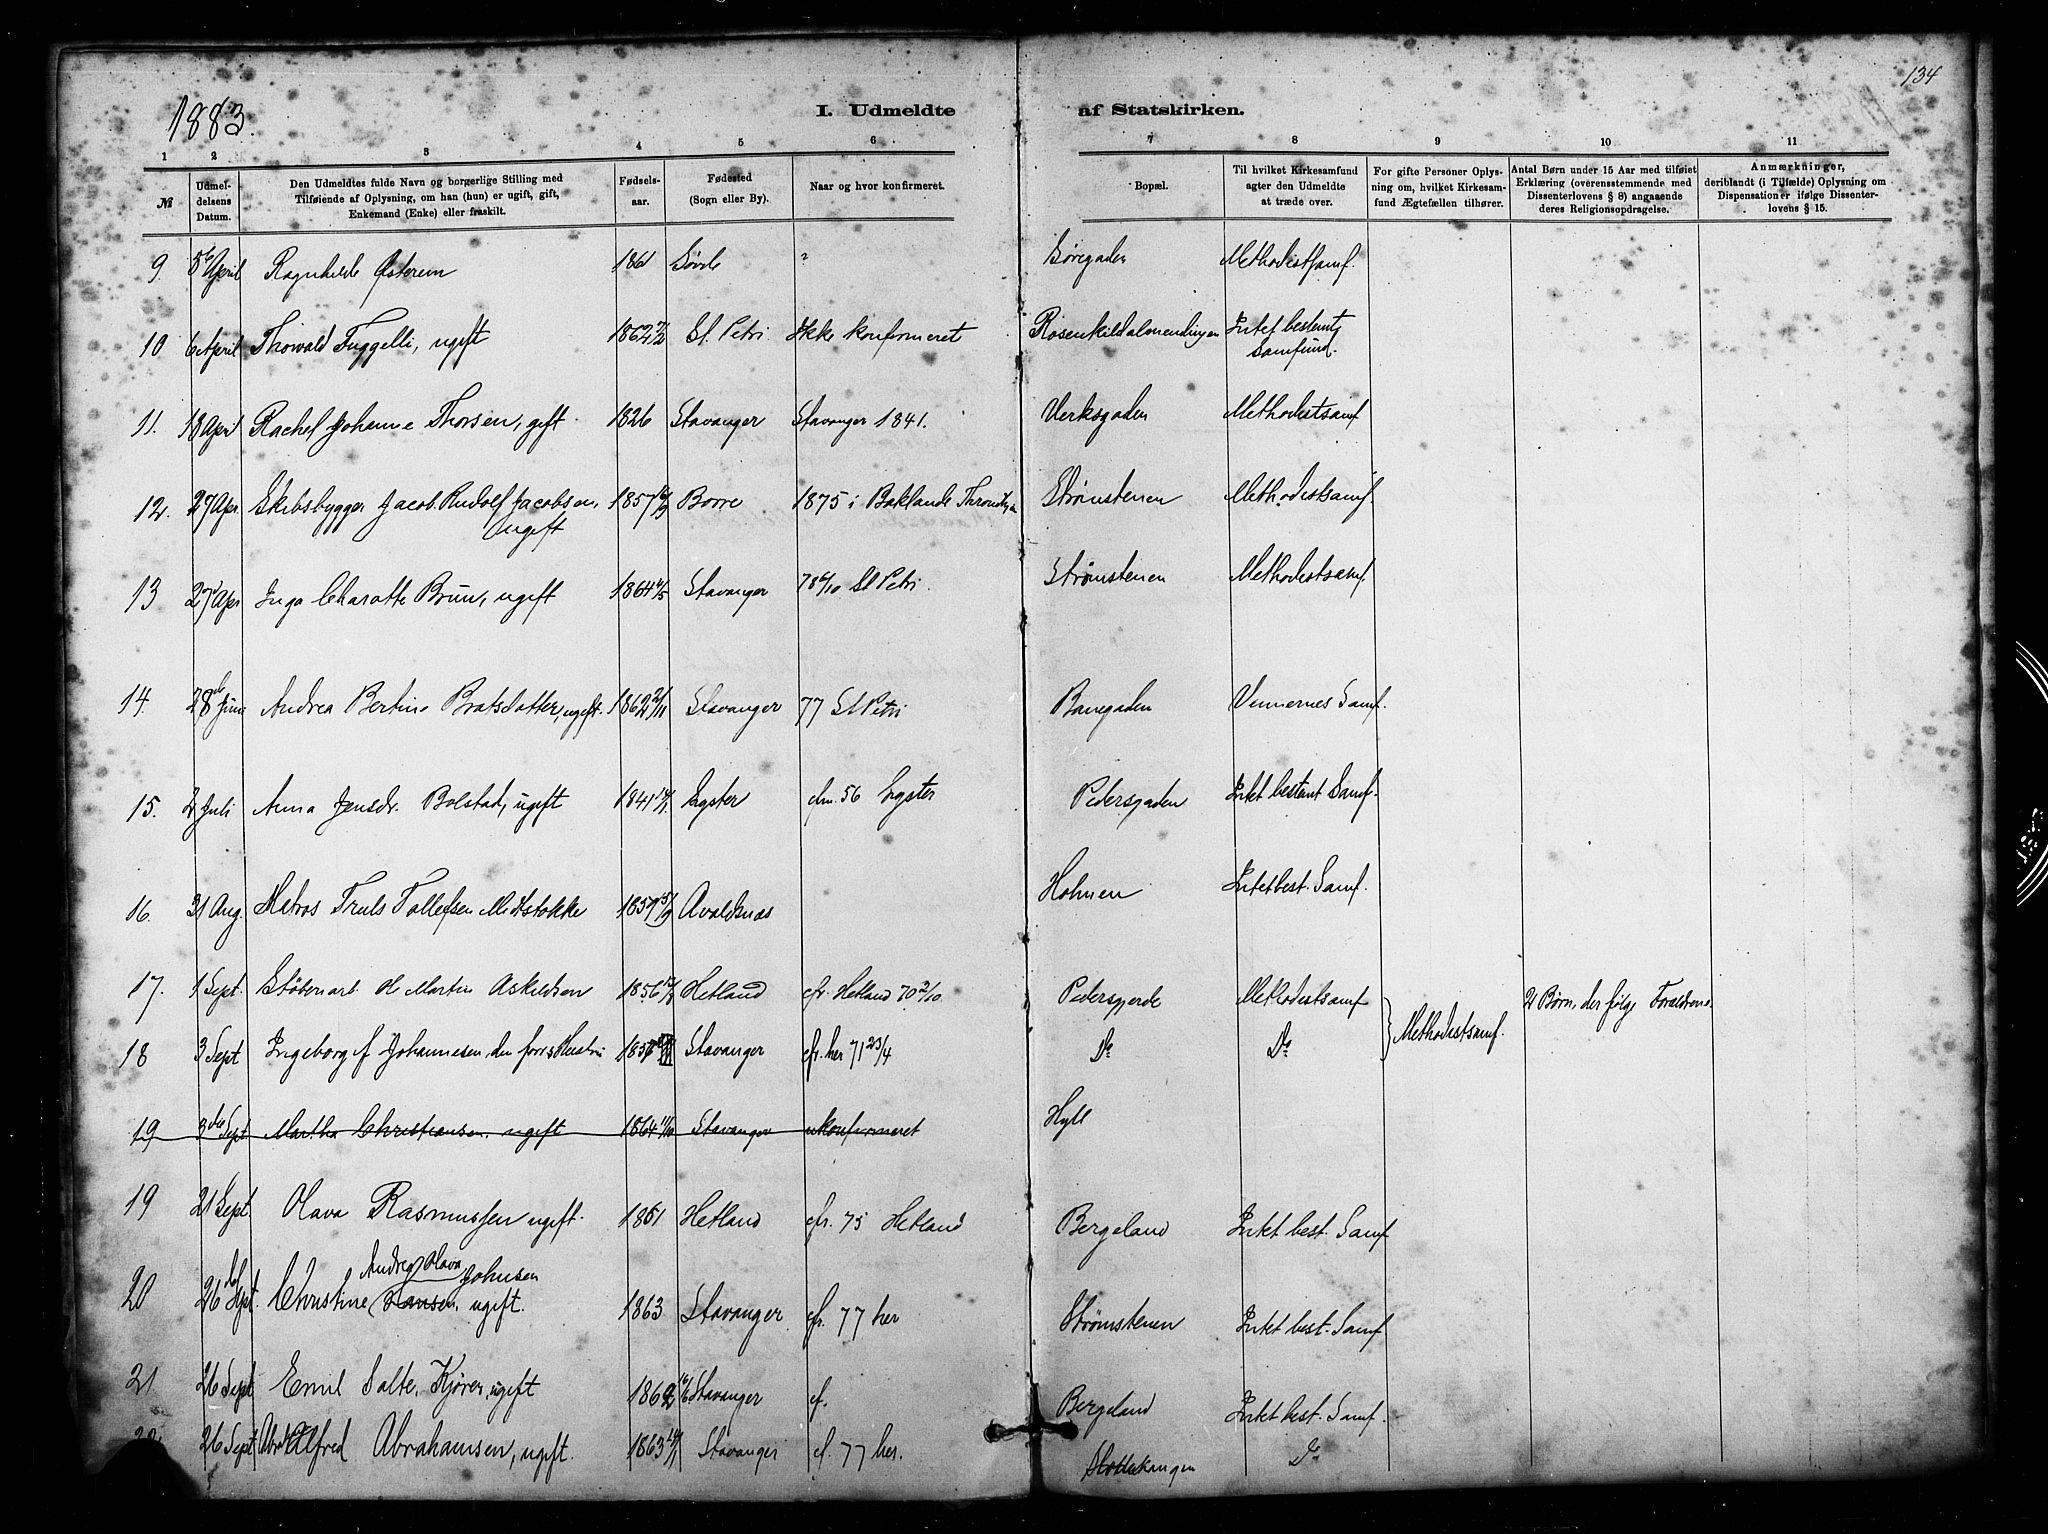 134
1883.
I. Udmeldte af Statskirken.
1 2 3 4 5 6 7 8 9 10 11
№
Udmel-
delsens
Datum.
Den Udmeldtes fulde Navn og borgerlige Stilling med
Tilføiende af Oplysning, om han (hun) er ugift, gift,
Enkemand (Enke) eller fraskilt.
Fødsels-
aar.
Fødested
(Sogn eller By).
Naar og hvor konfirmeret.
Bopæl.
Til hvilket Kirkesamfund
agter den Udmeldte
at træde over.
For gifte Personer Oplys-
ning om, hvilket Kirkesam-
fund Ægtefællen tilhører.
Antal Børn under 15 Aar med tilføiet
Erklæring (overensstemmende med
Dissenterlovens § 8) angaaende
deres Religionsopdragelse.
Anmærkninger,
deriblandt (i Tilfælde) Oplysning om
Dispensationer ifølge Dissenter-
lovens § 15.
9. April Ragnhilde Østerem 1861 Søvde ? Søregaden Methodistsamf.
10 6 April Thorvald Fuggelli, ugift 1862 St. Petri Ikke konfirmeret Rosenkildalmendingen Intet bestemt
Samfund.
11. 18 April Rachel Johanne Thorsen, gift 1826 Stavanger Stavanger 1841. Verksgaden Methodistsamf
12. 27 Apr Skibsbygger Jacob Rudolf Jacobsen, 1857 Borre 1875 i Baklandet Strømstenen Methodistsamf.
ugift
13 27 Apr Inga Charotte Bruun, ugift 1864 Stavanger 78 6/10 St Petri. Strømstenen Methodistsamf
14. 28 Juni Andrea Bertine Bratsdatter, ugift. 1862 Stavanger 77 St Petri Banegaden Vennernes Samf.
15. 2 Juli Anna Jensdr. Bolstad, ugift 1841 Lyster 56 Lyster Pedersgaden Intet bestemt Samf.
16. 31 Aug. Matros Truls Tollefsen Midtstokke 1857 Avaldsnes Holmen Intet best. Samf.
17. 1 Sept. Støberiarb. Martin Askildsen 1856 Hetland cfr. Hetland 70 2/10. Pedersgjerde Methodistsamf 2 Børn, der følge Forældrene
18 3 Sept Ingeborg Johannesen den forres Hustru 1857 Stavanger cfr. her 71 23/4 Do Do } Methodistsamf.
19 3 Sept Martha Christiansen. ugift 1864 Stavanger ukonfirmeret Hyll
19 21 Sept. Olava Rasmussen ugift. 1861 Hetland cfr. 75 Hetland Bergeland Intet best. Samf
Andrea Olava Johnsen
20 26 Sept. Christine Hansen, ugift. 1863 Stavanger cfr. 77 her Strømstenen Intet best. Samf
21 26 Sept Emil Salte, Kjører, ugift 1862 Stavanger cf. Bergeland Intet best. Samf.
26 Sept Alfred Abrahamsen, ugift. 1863 Stavanger cf. 77 her. Do